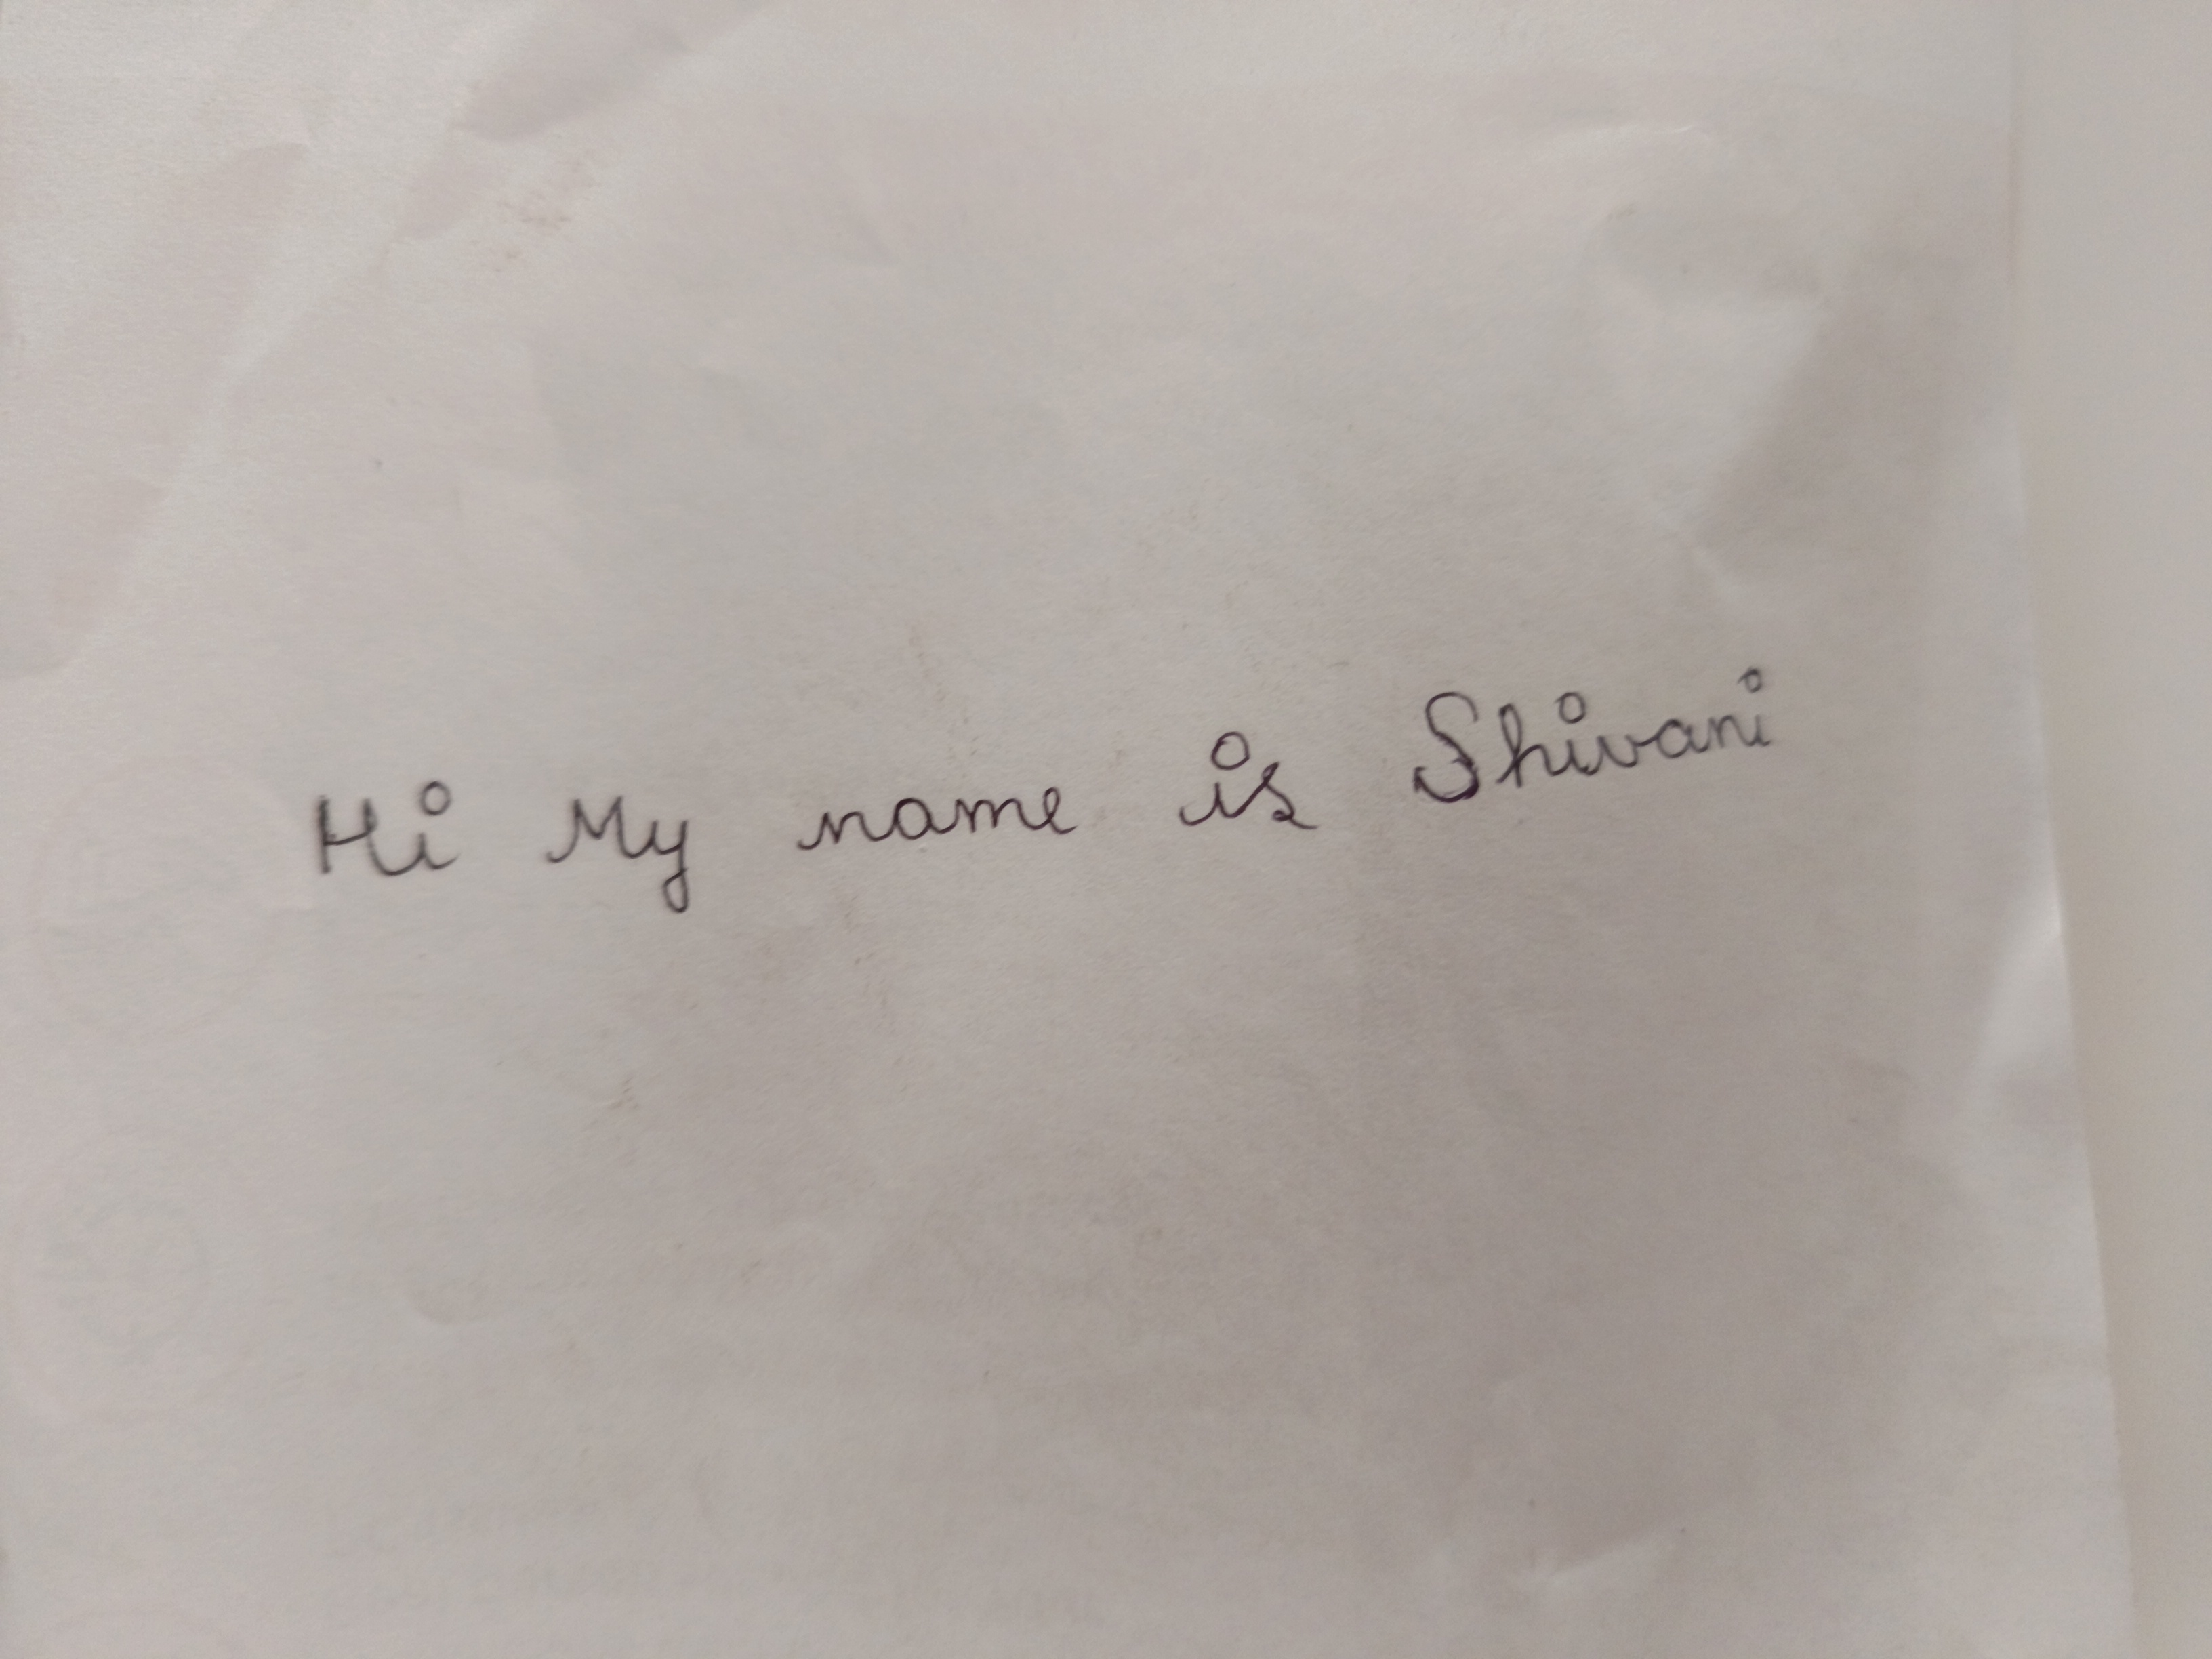 Hi My name is Shivani